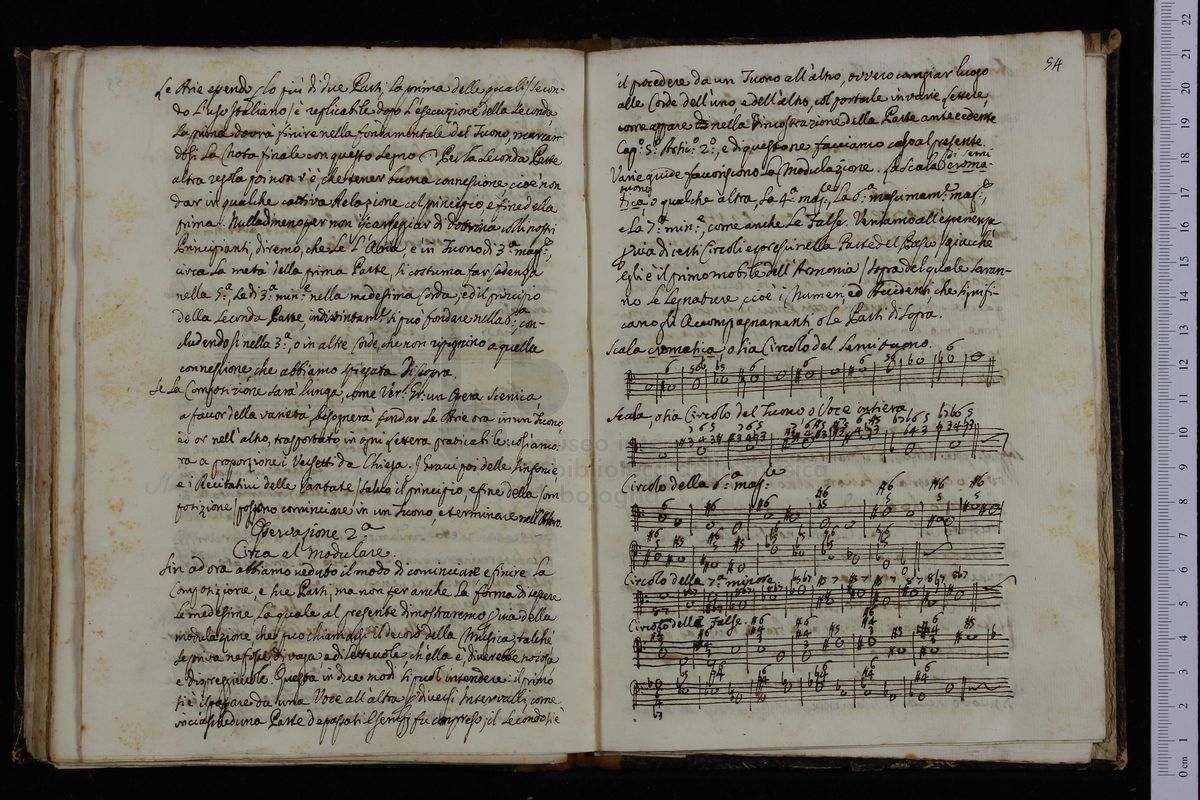 Le Arie essendo lo più di due Parti; la prima delle quali /secon-
do l'uso Italiano/ è replicabile dopo l'esecuzione della seconda
La prima dovrà finire nella fondamentale del Tuono, marcan-
dosi la Nota finale con questo segno Per la seconda Parte
altra regola poi non v'è, che tener buona connessione cioè non
dar in qualche cattiva Relazione col principio e fine della
prima. Nulladimeno per non di dottrina alli nostri
Principianti, diremo, che se l'Aria è in Tuono di 3ª magᵉ,
circa la metà della prima Parte, si costuma far cadenza
nella 5ª, se di 3ª minᵉ nella medesima Corda; ed il principio
della seconda Parte, indistintamᵗᵉ si può fondare nella 6ª con-
cludendosi nella 3ª, o in altre Corde, che non ripugnino a quella
connessione che abbiamo spiegata di sopra.
Se la Composizione sarà lunga, come Ver: Gr: un Opera Scenica
a favor della varietà, bisognerà fondar le Arie ora in un Tuono,
ed or nell'altro, trasportato in ogni lettera praticabile, così anco-
ra a proporzione i Versetti da Chiesa. I Gravi poi delle Sinfonie
e i Recitativi delle Cantate /salvo il principio, e fine della Com
posizione/ possono cominciare in un Tuono, e terminare nell'Altro.
Osservazione 2ª
Circa al Modulare.
Sin ad ora abbiamo veduto il modo di cominciare e finire la
Composizione, e sue Parti, ma non per anche la forma di tessere
le medesime. La quale al presente dimostraremo p via della
modulazione che può chiamarsi il decoro della Musica, talché
se priva ne fosse, di vaga e dilettevole ch'ella è, diverebbe noiosa
e dispreggievole. Questa in due modi si può intendere: il primo
si è il passare da una Voce all'altra p diversi Intervalli, come
in ciascheduna Parte de passati Esempj fu compreso; il secondo si è
54
il procedere da un Tuono all'altro, ovvero cangiar luogo
alle Corde dell'uno e dell'altro, col portarle in varie lettere,
come appare nella Dimostrazione della Parte antecedente
Capº 5º Artic.º 2º, e di questo ne facciamo caso al presente.
Varie guide favoriscono la Modulazione. La Scala croma-
di semi
tuono
tica o qualche altra, la 4ª magᵉ, la 6ª massimamᵗᵉ magᵉ,
e la 7ª minᵉ, come anche le False. Veniamo all'esperienza
p via di certi Circoli espressi nella Parte del Basso /giacché
egli è il primo mobile dell'Armonia/ sopra del quale saran-
no le segnature, cioè i Numeri, ed Accidenti, che signifi-
cano gli Accompagnamenti o le Parti di sopra.
Scala cromatica, o sia Circolo del Semituono.
Scala, o sia Circolo del Tuono o Voce intiera
Circolo della 6ª magᵉ
Circolo della 7ª minore
Circolo delle False.